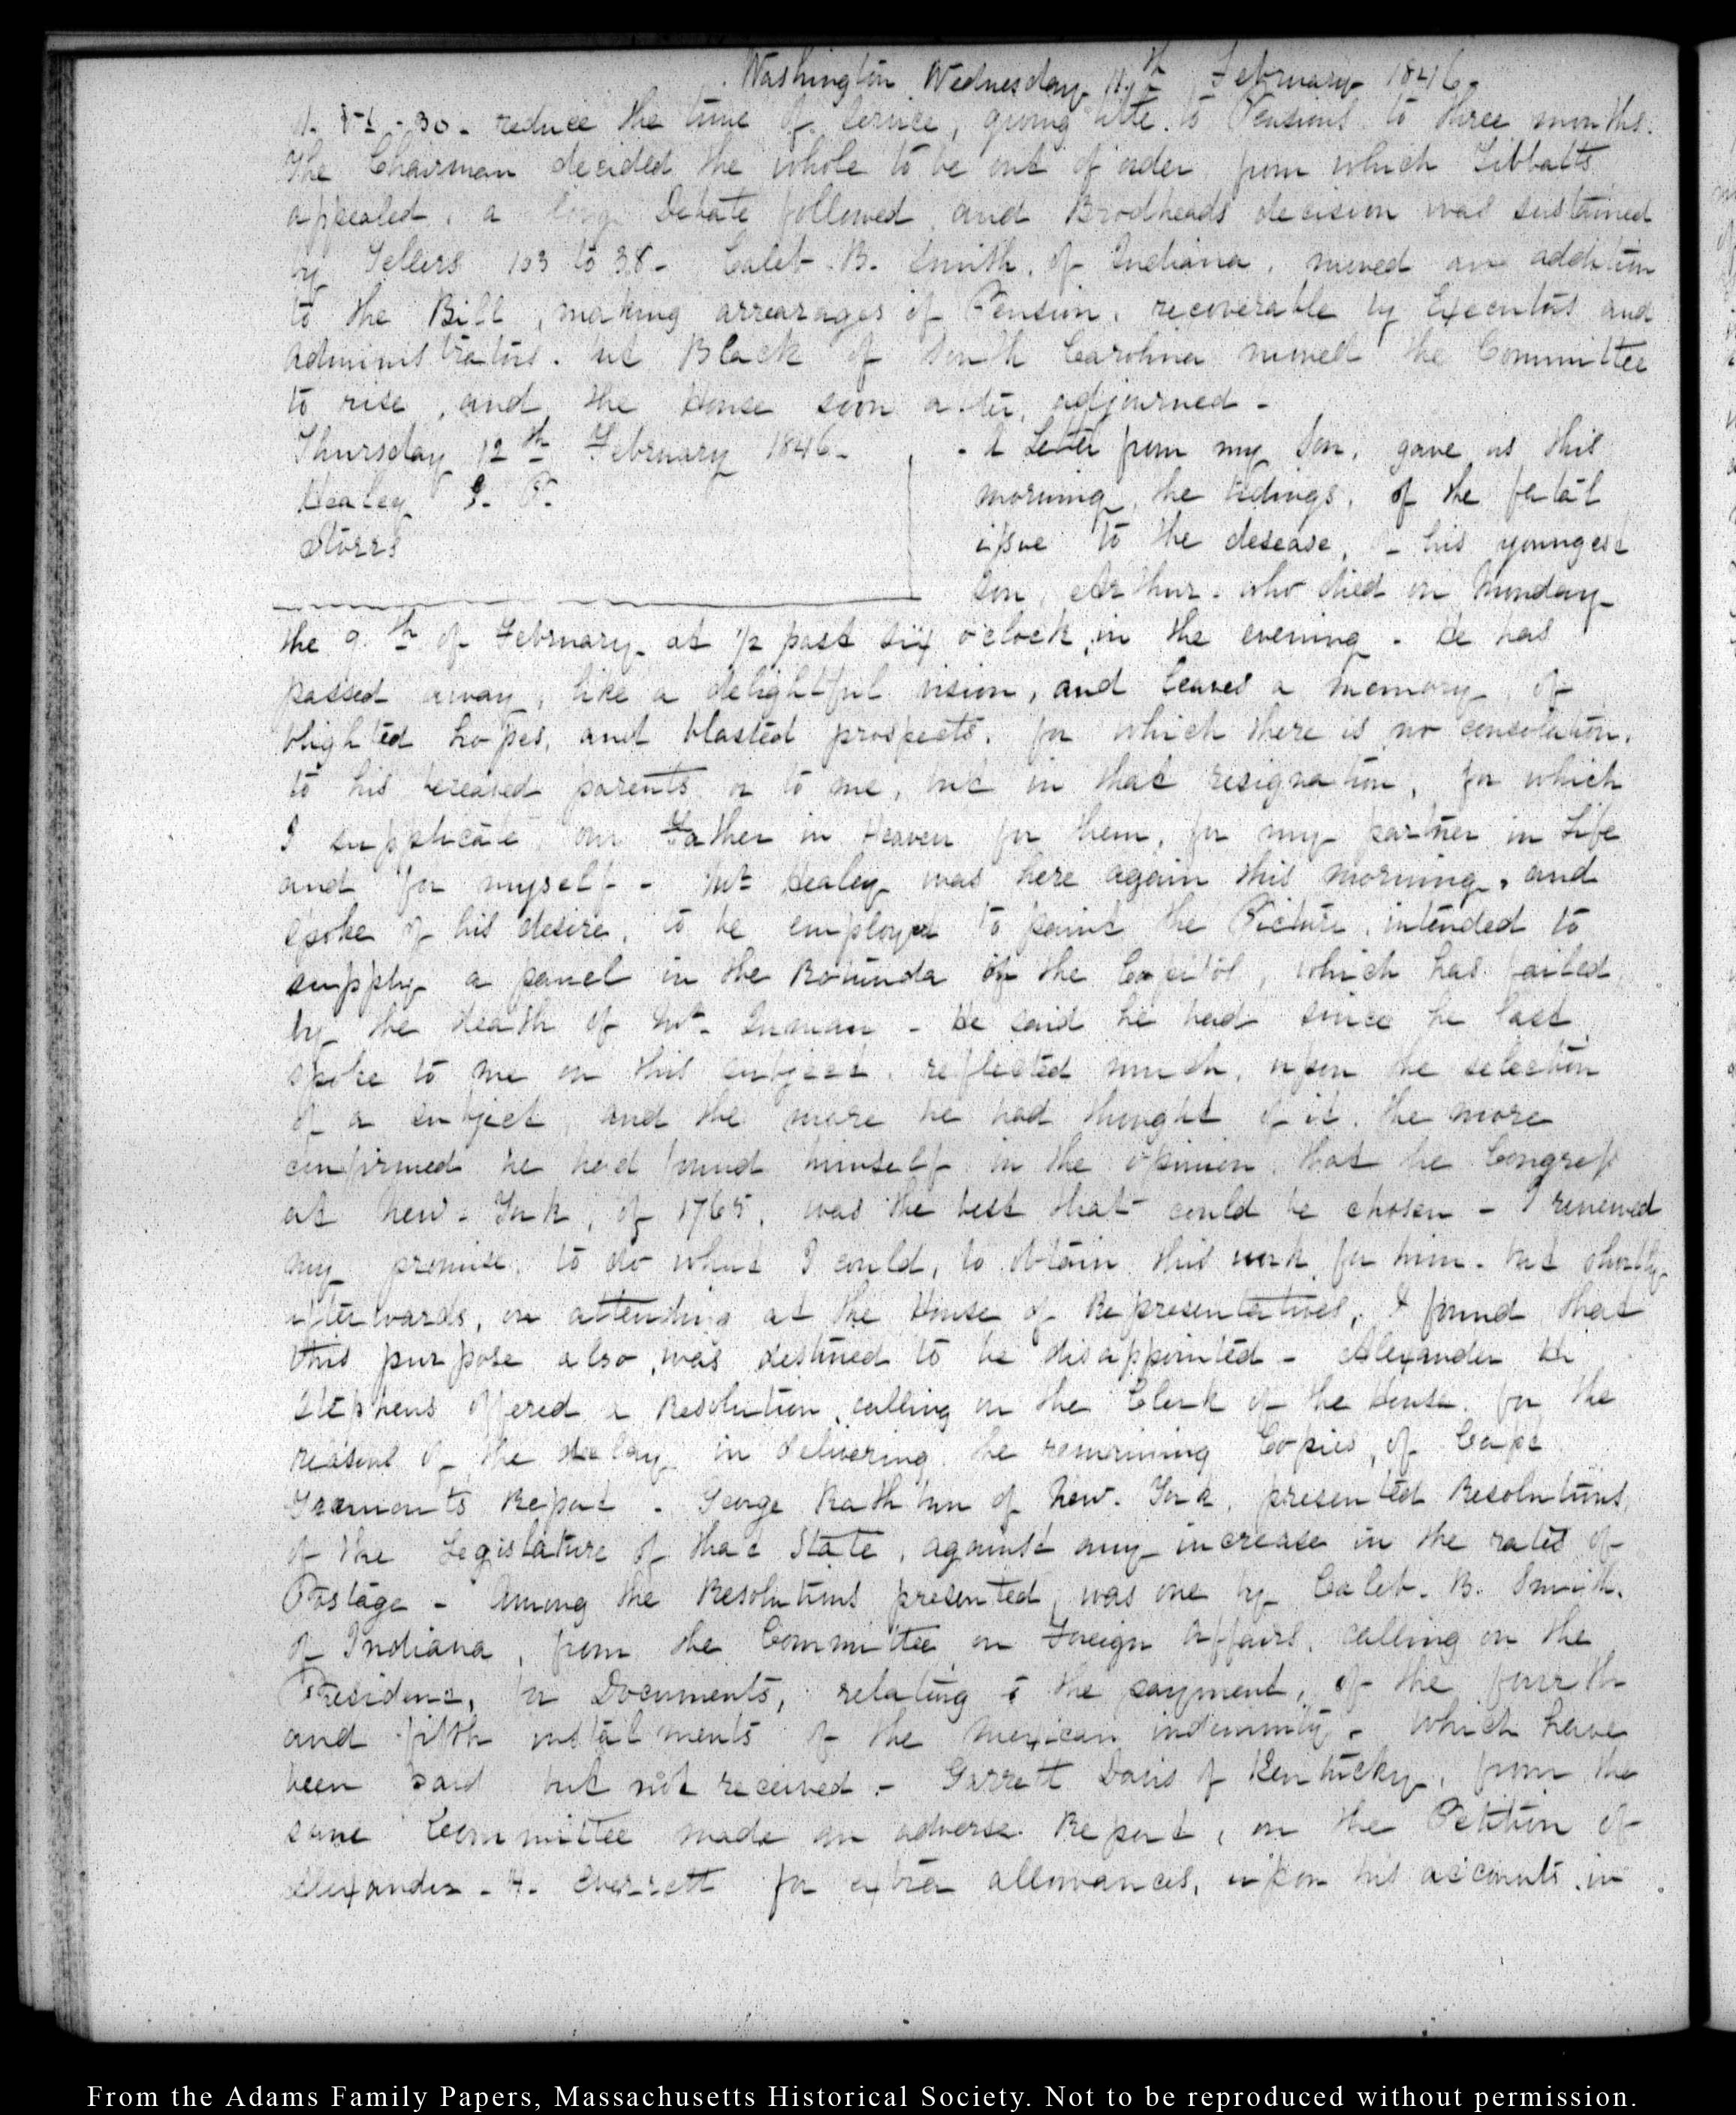 Washington Wednesday 11th February 1846.
reduce the time of service, giving title to Pensions to three months.
The Chairman decided the whole to be out of order from which Tibbatts
appealed, a long Debate followed and Brodheads decision was sustained
by Tellers 103 to 38 - Caleb B. Smith, of Indiana, moved an addition
to the Bill, making arrearages of Pension, recoverable by Executors and
administrators. but Black of South Carolina moved the Committee
to rise, and the House soon after, adjourned -
Thursday 12th February 1846 -
Healey G. P.
Storrs
- A Letter from my Son, gave us this
morning, the tidings, of the fatal
issue to the desease, - his youngest
Son, Arthur. who died on Monday
the 9.th of February at 1/2 past six o'clock, in the evening - He has
passed away, like a delightful vision, and leaves a memory of
blighted hopes, and blasted prospects, for which there is no consolation,
to his bereaved parents or to me, but in that resignation, for which
I supplicate our Father in Heaven for them, for my partner in Life
and for myself - Mr Healey was here again this morning, and
spoke of his desire, to be employed to paint the Picture, intended to
supply a panel in the Rotunda of the Capitol, which has failed
by the death of Mr Inman - He said he had since he last
spoke to me on this subject, reflected much, upon the selection
of a subject, and the more he had thought of it, the more
confirmed he had found himself in the opinion, that the Congress
at New-York, of 1765, was the best that could be chosen - I renewed
my promise, to do what I could, to obtain this work for him. but shortly
afterwards, on attending at the House of Representatives, I found that
this purpose also, was destined to be disappointed - Alexander H.
Stephens offered a Resolution, calling on the Clerk of the House, for the
reasons of the delay in delivering the remaining Copies, of Capt
Fremont's Report - George Rathbun of New-York, presented Resolutions,
of the Legislature of that State, against any increase in the rates of
Postage - Among the Resolutions presented, was one by Caleb. B. Smith,
of Indiana, from the Committee on Foreign Affairs, calling on the
President, for Documents, relating to the payment, of the fourth
and fifth instalments of the Mexican indemnity - which have
been paid but not received - Garrett Davis of Kentucky, from the
same Committee made an adverse Report, on the Petition of
Alexander - H. Everett for extra allowances, upon his accounts in
From the Adams Family Papers, Massachusetts Historical Society. Not to be reproduced without permission.